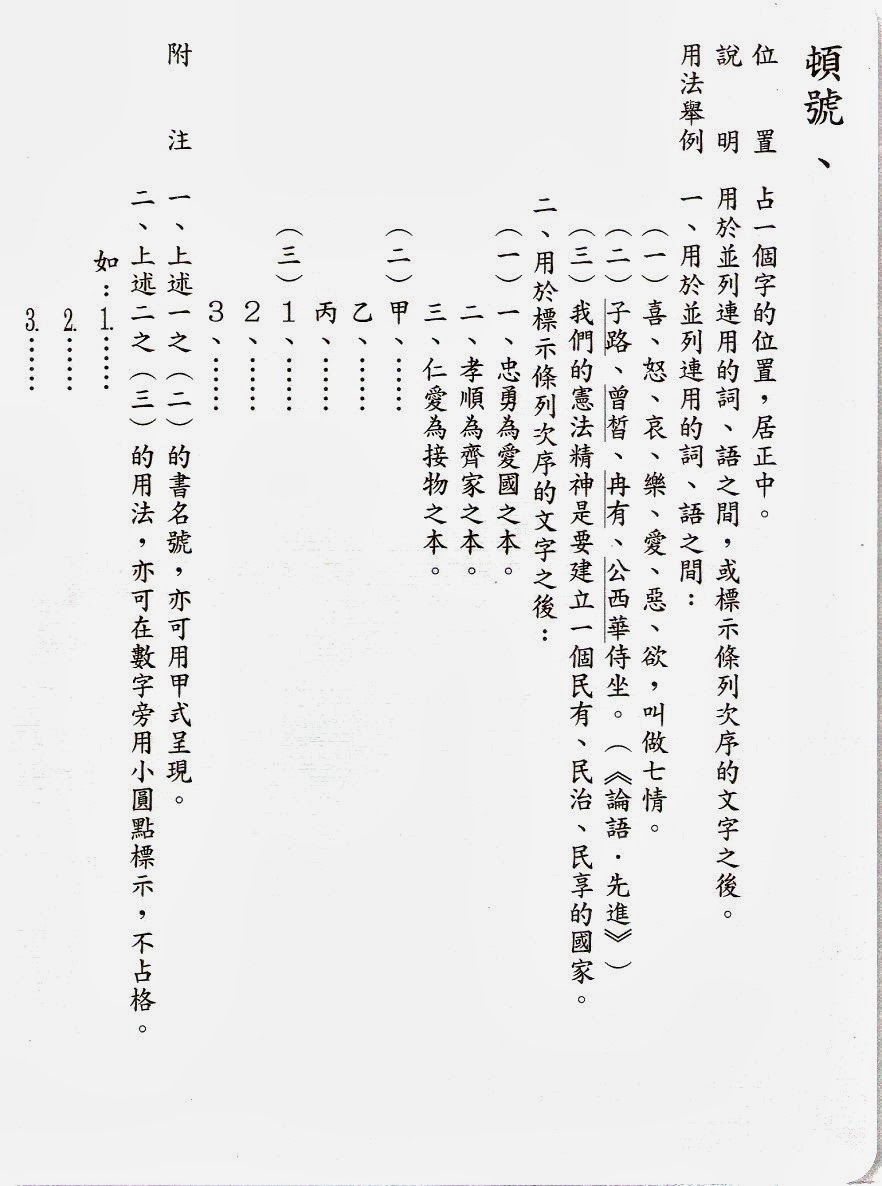 頓號、
位置 占一個字的位置，居正中。
說明 用於並列連用的詞、語之間，或標示條列次序的文字之後。
用法舉例 一、用於並列連用的詞、語之間：
（一）喜、怒、哀、樂、愛、惡、欲，叫做七情。
（二）子路、曾皙、冉有、公西華侍坐。（《論語．先進》）
（三）我們的憲法精神是要建立一個民有、民治、民享的國家。
二、用於標示條列次序的文字之後：
（一）一、忠勇為愛國之本。
二、孝順為齊家之本。
三、仁愛為接物之本。
（二）甲、……
乙、……
丙、……
（三）１、……
２、……
３、……
附注 一、上述一之（二）的書名號，亦可用甲式呈現。
二、上述二之（三）的用法，亦可在數字旁用小圓點標示，不占格。
如：1.……
2.……
3.……